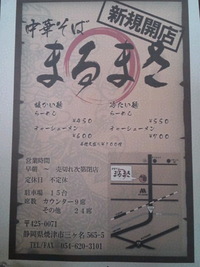 新規開店
中華そば
まるまさ
温かい麺
らーめん ¥450
チャーシューメン ¥600
冷たい麺
らーめん ¥550
チャーシューメン ¥700
営業時間
早朝 ~ 売切れ次第閉店
定休日 不定休
駐車場 15台
席数 カウンター9席
その他 24席
〒425-0071
静岡県焼津市三ヶ名565-5
TEL/FAX 054-620-3101
まるまさ